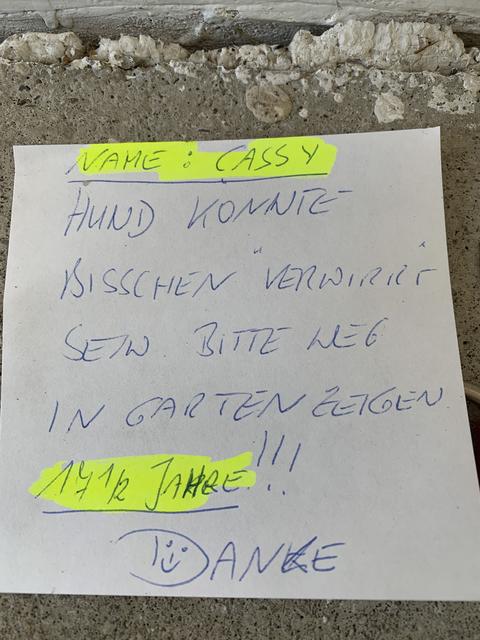 NAME: CASSY
HUND KONNTE
BISSCHEN "VERWIRRT"
SEIN. BITTE WEG
IN GARTEN ZEIGEN
17 1/2 JAHRE!!!
DANKE